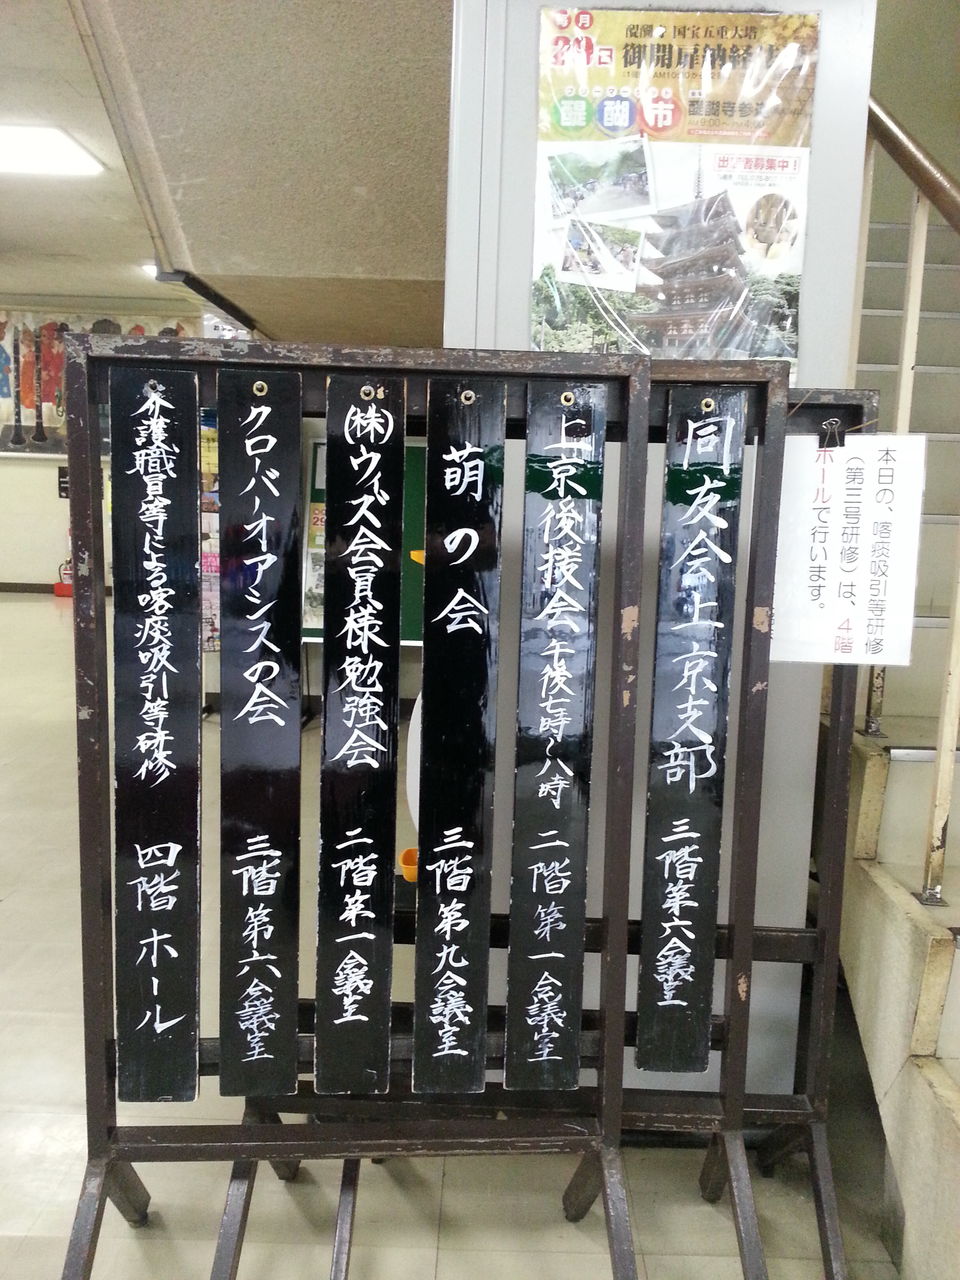 毎月
29日
醍醐寺 国宝五重大塔
御開扉納経
フリーマーケット
醍醐市
醍醐寺参道
AM9:00〜PM4:00
出店者募集中!
本日の、喀痰吸引等研修
(第三号研修)は、4階
ホールで行います。
同友会上京支部 三階第六会議室
上京後援会 午後七時〜八時 二階第一会議室
萌の会 三階第九会議室
(株)ウィズ会員様勉強会 二階第一会議室
クローバーオアシスの会 三階第六会議室
介護職員等による喀痰吸引等研修 四階ホール